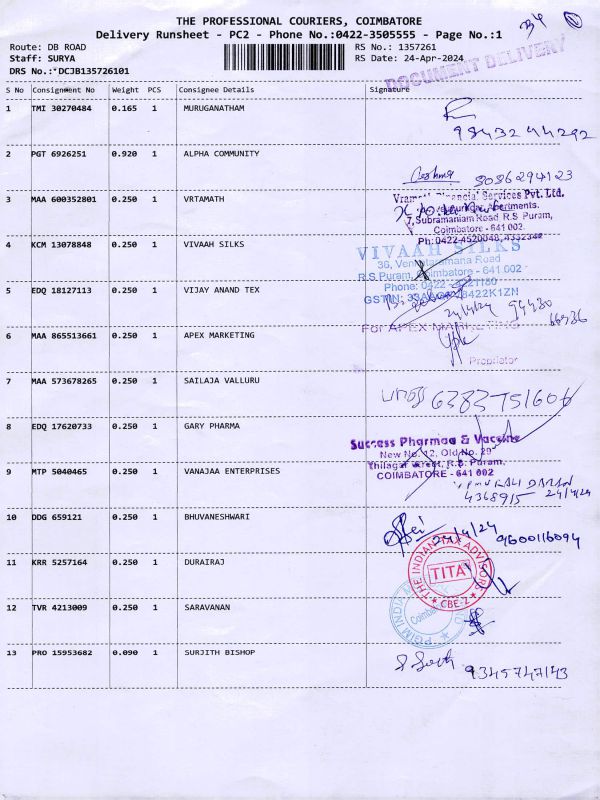 THE PROFESSIONAL COURIERS, COIMBATORE
Delivery Runsheet - PC2 - Phone No.:0422-3505555 - Page No.:1
Route: DB ROAD
Staff: SURYA
DRS No.: DCJB135726101
RS No.: 1357261
RS Date: 24-Apr-2024
DOCUMENT DELIVERY
S No Consignment No Weight PCS Consignee Details Signature
1 TMI 30270484 0.165 1 MURUGANATHAM
98432 44292
2 PGT 6926251 0.920 1 ALPHA COMMUNITY
8086294123
3 MAA 600352801 0.250 1 VRTAMATH
Financial Services Pvt. Ltd.
Apartments.
7, Subramaniam Road R.S Puram,
Coimbatore - 641 002.
Ph: 0422-4520048,
4 KCM 13078848 0.250 1 VIVAAH SILKS
VIVAAH SILKS
36, Venkataramana Road
R.S Puram, Coimbatore - 641 002
Phone: 0422
5 EDQ 18127113 0.250 1 VIJAY ANAND TEX
24/4/24 94430
66936
6 MAA 865513661 0.250 1 APEX MARKETING
For APEX MARKETING
Proprietor
7 MAA 573678265 0.250 1 SAILAJA VALLURU
6383751606
8 EDQ 17620733 0.250 1 GARY PHARMA
Success Pharmaa & Vaccine
New No. 12, Old No. 29
R.S. Puram,
COIMBATORE - 641 002
9 MTP 5040465 0.250 1 VANAJAA ENTERPRISES
4368915 24/4/24
10 DDG 659121 0.250 1 BHUVANESHWARI
24/4/24 9600116094
11 KRR 5257164 0.250 1 DURAIRAJ
THE INDIAN TAX ADVISORS
TITA
CBE-2
12 TVR 4213009 0.250 1 SARAVANAN
PGIM INDIA
Coimbatore
13 PRO 15953682 0.090 1 SURJITH BISHOP
9345747143